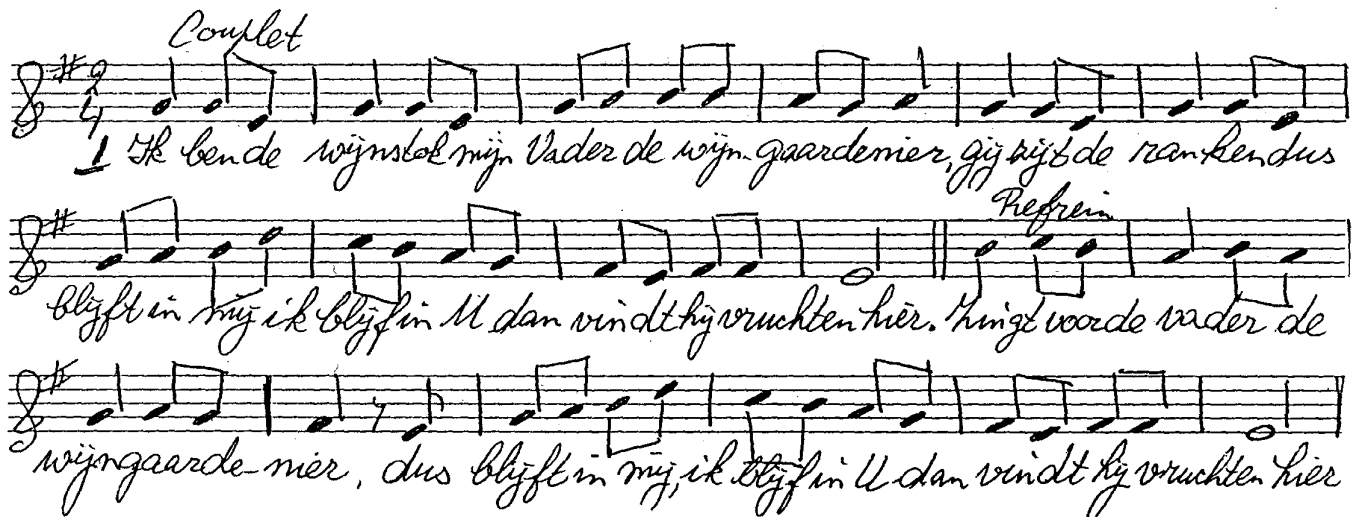 Couplet
2
4
1 Ik ben de wijnstok mijn Vader de wijn-gaardenier, gij zijt de ranken dus
Refrein
blijft in mij ik blijf in U dan vindt hij vruchten hier. Zingt voor de vader de
wijngaarde-nier, dus blijft in mij, ik blijf in U dan vindt hij vruchten hier